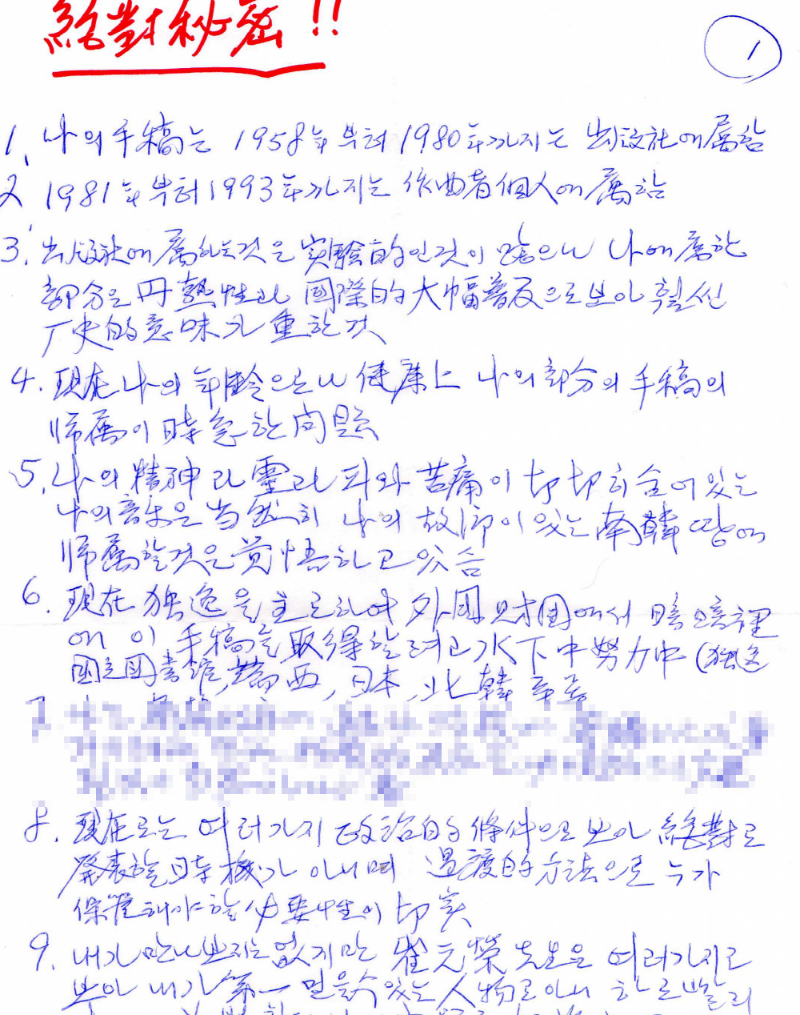 絶對秘密!!
1
1. 나의 手稿는 1958年부터 1980年까지는 出版社에 属함
2 1981年부터 1993年까지는 作曲者個人에 属함
3. 出版社에 属하는것은 実験的인것이 많으나 나에 属한
部分은 円熟性과 国際的大幅普及으로 보아 훨씬
厂史的意味가 重한것
4. 現在 나의 年齢으로나 健康上 나의 部分의 手稿의
帰属이 時急한 问题
5. 나의 精神과 靈과 피와 苦痛이 切切히 숨어있는
나의 音楽은 当然히 나의 故郷이 있는 南韓땅에
帰属할것은 覚悟하고 있음
6. 現在 独逸을 主로하여 外国財団에서 暗暗裡
에 이 手稿를 取得할려고 水下中努力中 (独逸
国立図書館, 瑞西, 日本, 北韓 等等
8. 現在로는 여러가지 政治的 條件으로 보아 絶對로
発表할 時機가 아니며 過渡的 方法으로 누가
保管해야할 必要性이 切実
9. 내가 만나보지는 없지만 崔元榮 先生은 여러가지로
보아 내가 第一 믿을수있는 人物로이니 하로빨리